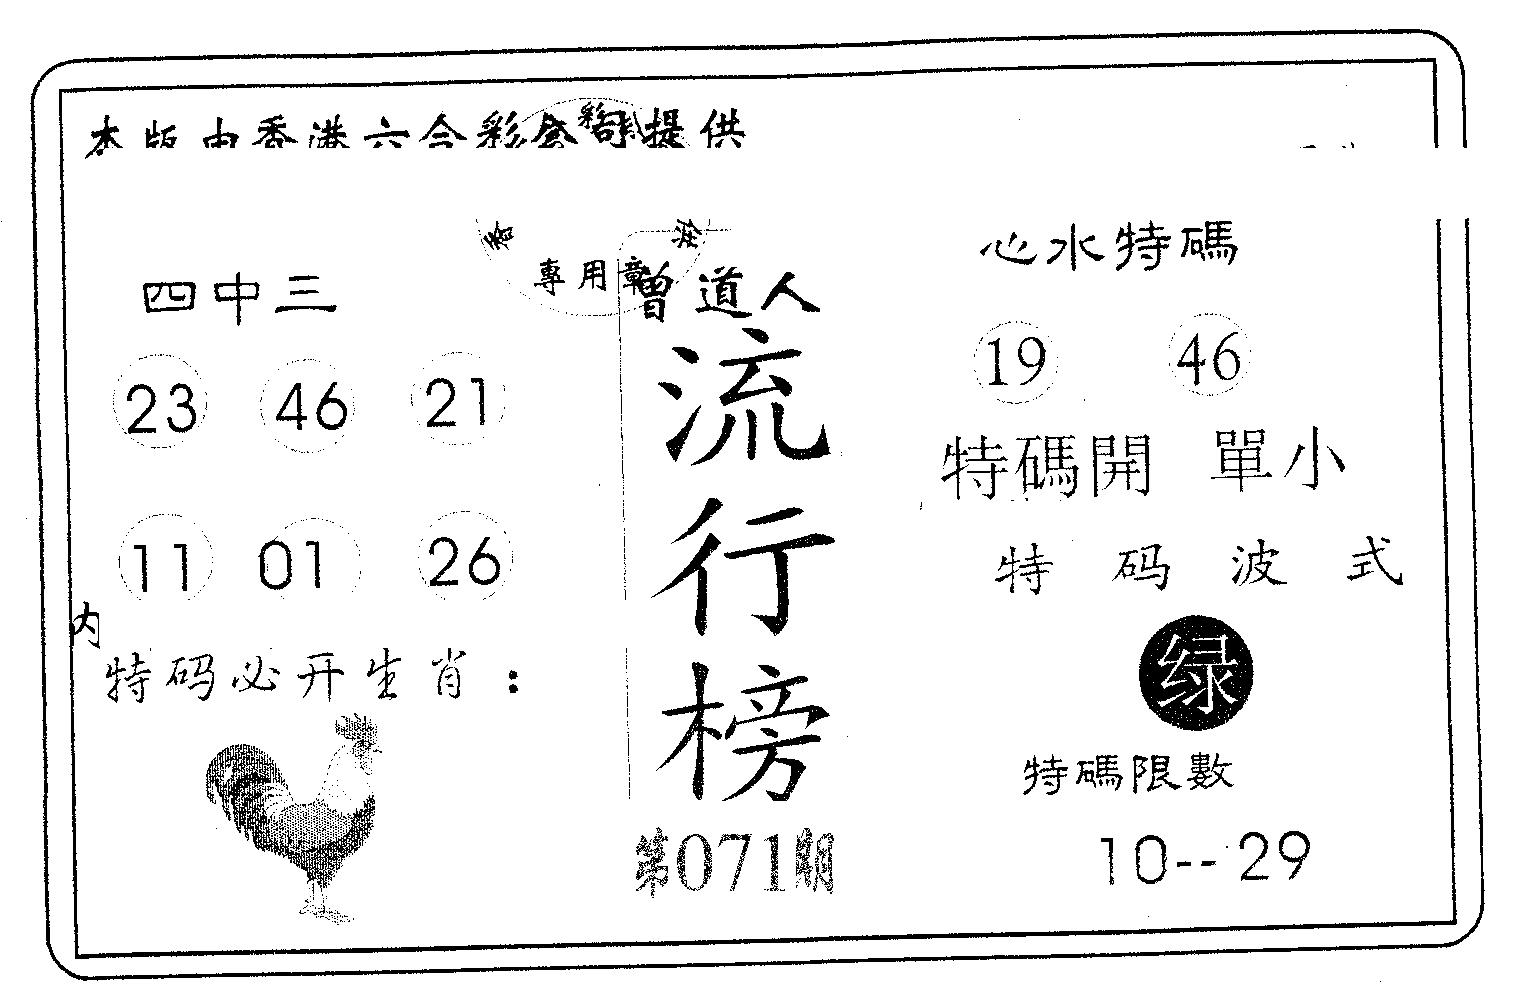 本版由香港六合彩公司提供
專用章
四中三
23 46 21
11 01 26
内
特码必开生肖：
曾道人
流行榜
第071期
心水特碼
19 46
特碼開 單小
特码波式
绿
特碼限數
10--29